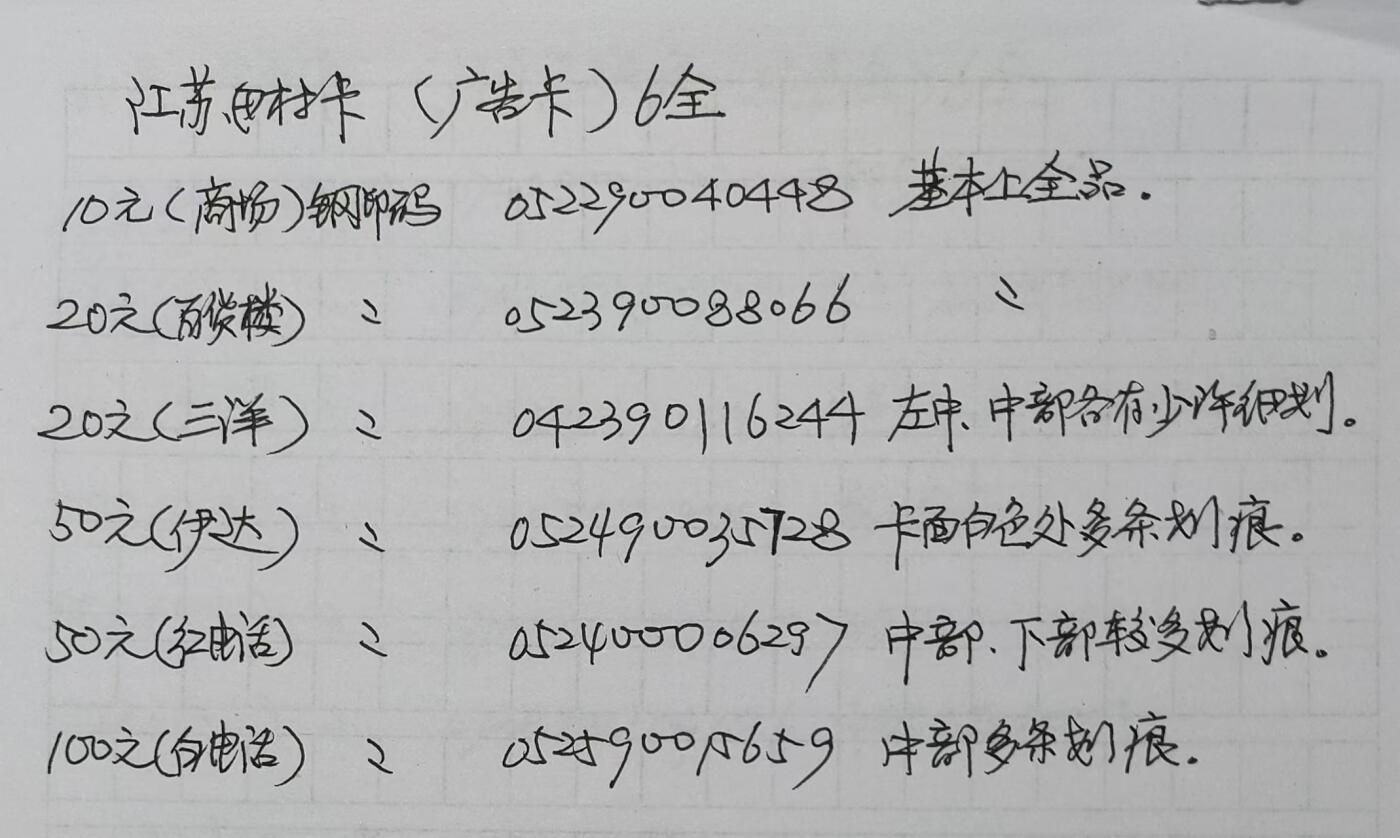 江苏田村卡（广告卡）6全
10元（商场）钢印码 052290040448 基本上全品.
20元（百货楼） 〃 052390088066 〃
20元（三洋） 〃 042390116244 左中、中部各有少许细划。
50元（伊达） 〃 052490035728 卡面白色处多条划痕。
50元（红电话） 〃 052400006297 中部、下部较多划痕。
100元（白电话） 〃 052590015659 中部多条划痕.